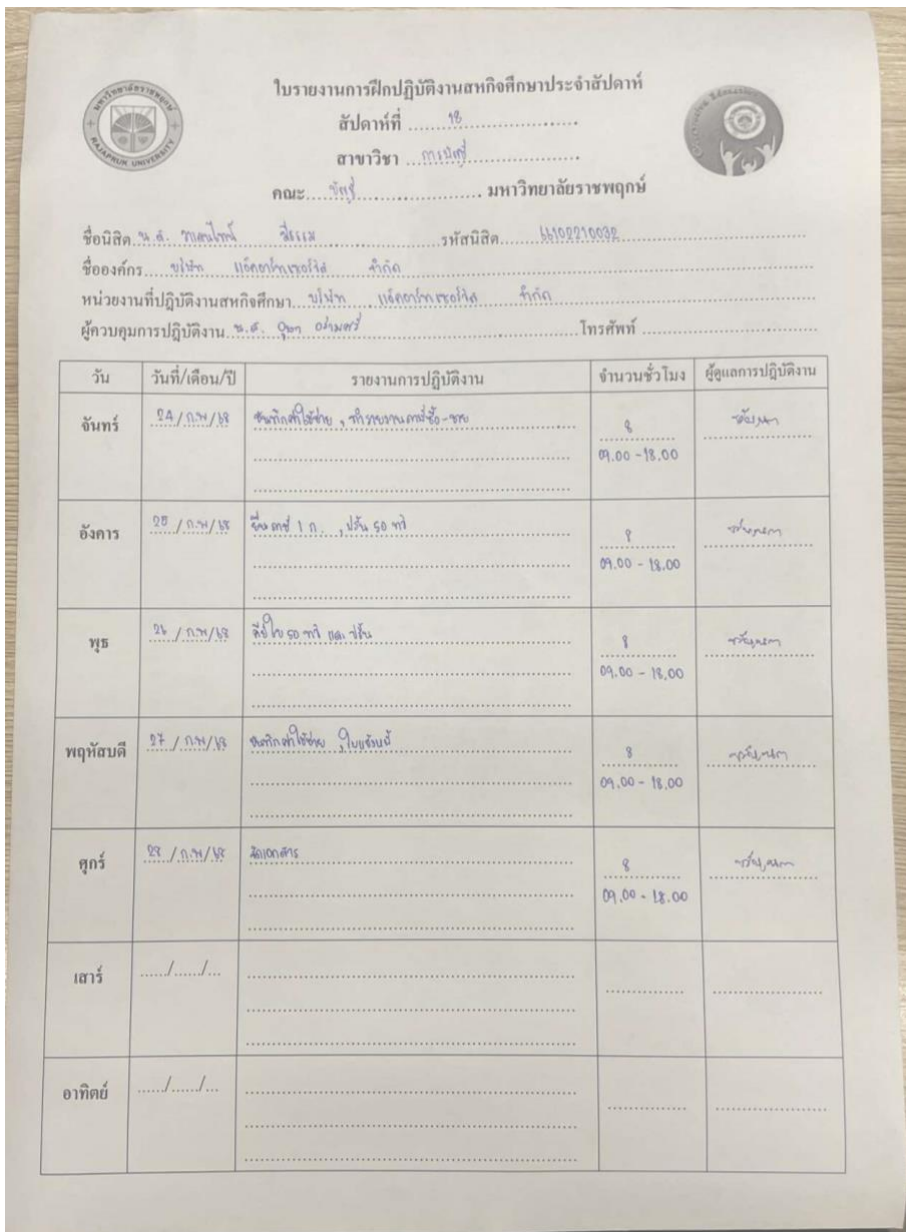 มหาวิทยาลัยราชพฤกษ์
RAJAPRUK UNIVERSITY
ใบรายงานการฝึกปฏิบัติงานสหกิจศึกษาประจำสัปดาห์
สัปดาห์ที่ 18
สาขาวิชา การบัญชี
คณะ บัญชี มหาวิทยาลัยราชพฤกษ์
ชื่อนิสิต น.ส. มีธรรม รหัสนิสิต 66102210032
ชื่อองค์กร บริษัท จำกัด
หน่วยงานที่ปฏิบัติงานสหกิจศึกษา บริษัท จำกัด
ผู้ควบคุมการปฏิบัติงาน น.ส. โทรศัพท์
วัน วันที่/เดือน/ปี รายงานการปฏิบัติงาน จำนวนชั่วโมง ผู้ดูแลการปฏิบัติงาน
จันทร์ 24 / ก.พ/68 บันทึกค่าใช้จ่าย , ทำรายงานภาษีซื้อ-ขาย 8
09.00 - 18.00
อังคาร 25 / ก.พ/68 ยื่นภาษี 1 ก. , ปริ้น 50 ทวิ 8
09.00 - 18.00
พุธ 26 / ก.พ/68 คีย์ใบ 50 ทวิ และ ปริ้น 8
09.00 - 18.00
พฤหัสบดี 27 / ก.พ/68 บันทึกค่าใช้จ่าย , ใบแจ้งหนี้ 8
09.00 - 18.00
ศุกร์ 28 / ก.พ/68 จัดเอกสาร 8
09.00 - 18.00
เสาร์
อาทิตย์